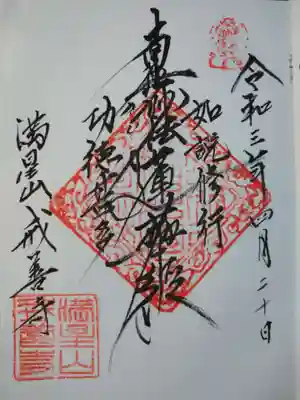 令和三年四月二十日
如説修行
南無妙法蓮華経
功徳甚多
満星山戒善寺
満星山
戒善寺